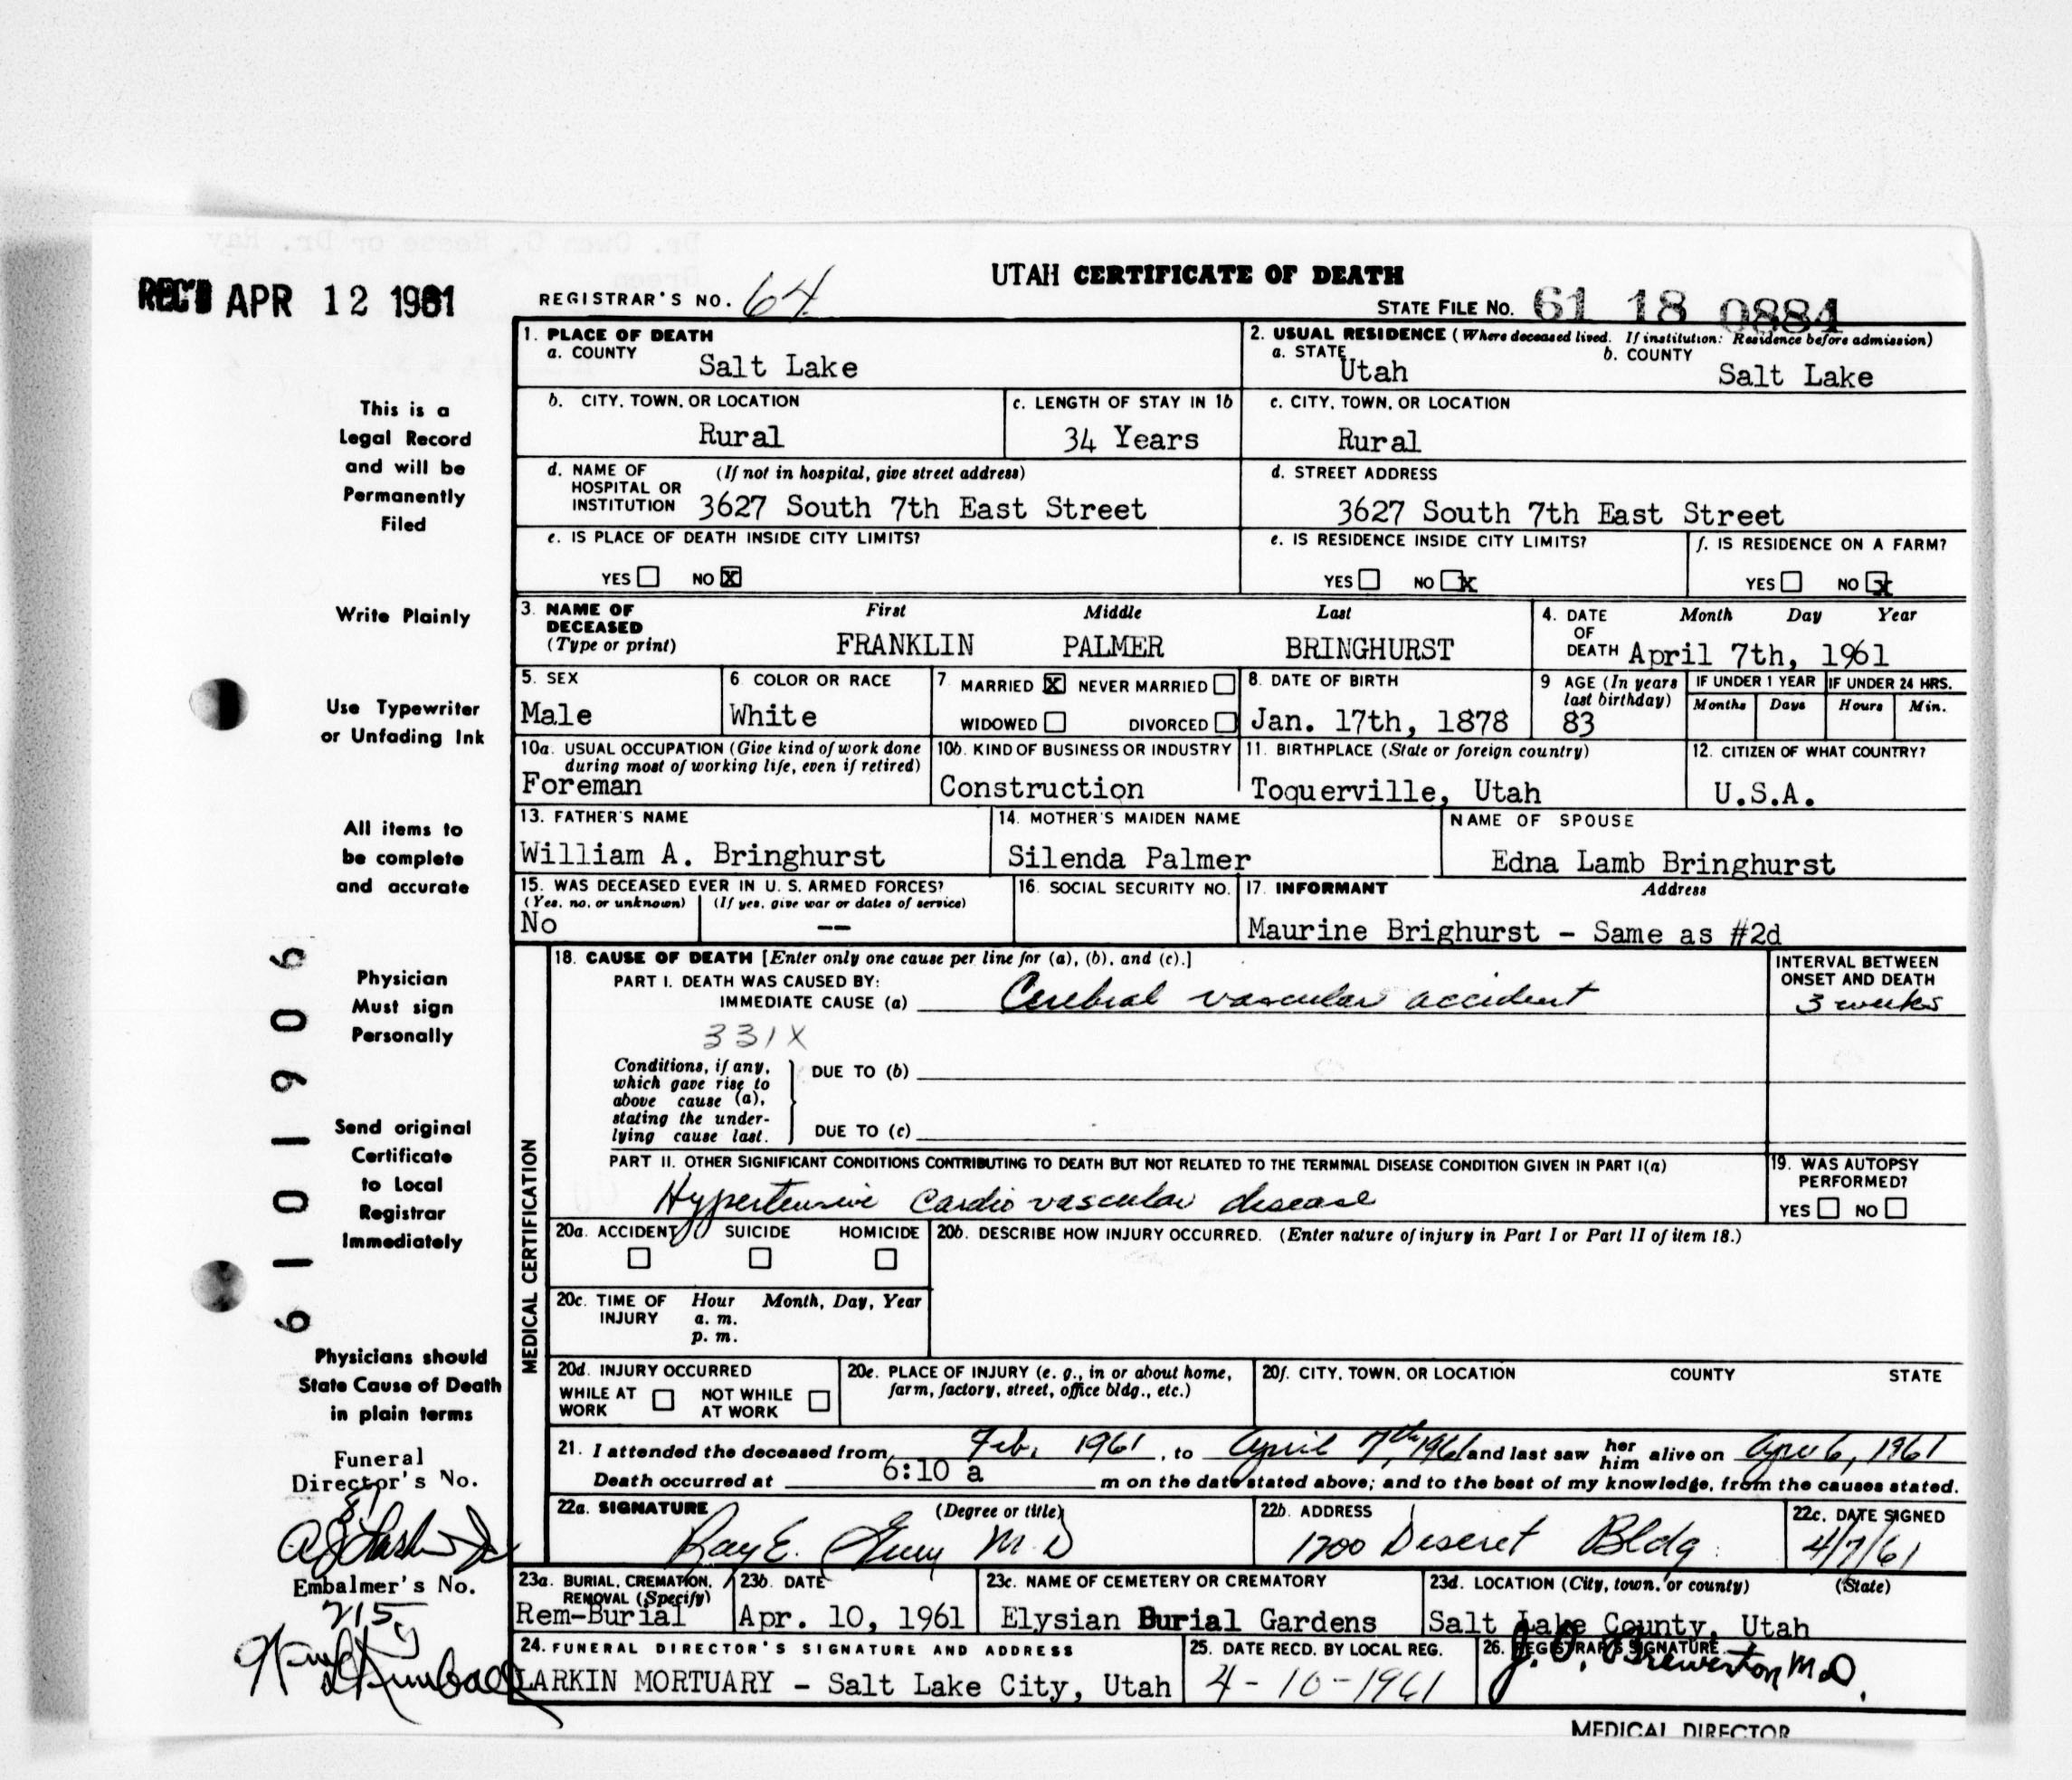 UTAH CERTIFICATE OF DEATH
REC'D APR 12 1961
REGISTRAR'S NO. 64
STATE FILE NO. 61 18 0884
1. PLACE OF DEATH
a. COUNTY
Salt Lake
2. USUAL RESIDENCE (Where deceased lived. If institution: Residence before admission)
a. STATE
Utah
b. COUNTY
Salt Lake
b. CITY, TOWN, OR LOCATION
Rural
c. LENGTH OF STAY IN 1b
34 Years
c. CITY, TOWN, OR LOCATION
Rural
d. NAME OF HOSPITAL OR INSTITUTION
(If not in hospital, give street address)
3627 South 7th East Street
d. STREET ADDRESS
3627 South 7th East Street
e. IS PLACE OF DEATH INSIDE CITY LIMITS?
YES NO X
e. IS RESIDENCE INSIDE CITY LIMITS?
YES NO X
f. IS RESIDENCE ON A FARM?
YES NO X
3. NAME OF DECEASED (Type or print)
First Middle Last
FRANKLIN PALMER BRINGHURST
4. DATE OF DEATH
Month Day Year
April 7th, 1961
5. SEX
Male
6 COLOR OR RACE
White
7. MARRIED X NEVER MARRIED
WIDOWED DIVORCED
8. DATE OF BIRTH
Jan. 17th, 1878
9 AGE (In years last birthday)
83
IF UNDER 1 YEAR
Months Days
IF UNDER 24 HRS.
Hours Min.
10a. USUAL OCCUPATION (Give kind of work done during most of working life, even if retired)
Foreman
10b. KIND OF BUSINESS OR INDUSTRY
Construction
11. BIRTHPLACE (State or foreign country)
Toquerville, Utah
12. CITIZEN OF WHAT COUNTRY?
U.S.A.
13. FATHER'S NAME
William A. Bringhurst
14. MOTHER'S MAIDEN NAME
Silenda Palmer
NAME OF SPOUSE
Edna Lamb Bringhurst
15. WAS DECEASED EVER IN U. S. ARMED FORCES?
(Yes, no, or unknown) (If yes, give war or dates of service)
No --
16. SOCIAL SECURITY NO.
17. INFORMANT Address
Maurine Brighurst - Same as #2d
MEDICAL CERTIFICATION
18. CAUSE OF DEATH [Enter only one cause per line for (a), (b), and (c).]
PART I. DEATH WAS CAUSED BY:
IMMEDIATE CAUSE (a) Cerebral vascular accident
INTERVAL BETWEEN ONSET AND DEATH
3 weeks
331X
Conditions, if any, which gave rise to above cause (a), stating the underlying cause last.
DUE TO (b)
DUE TO (c)
PART II. OTHER SIGNIFICANT CONDITIONS CONTRIBUTING TO DEATH BUT NOT RELATED TO THE TERMINAL DISEASE CONDITION GIVEN IN PART I(a)
Hypertensive Cardio vascular disease
19. WAS AUTOPSY PERFORMED?
YES NO
20a. ACCIDENT SUICIDE HOMICIDE
20b. DESCRIBE HOW INJURY OCCURRED. (Enter nature of injury in Part I or Part II of item 18.)
20c. TIME OF INJURY
Hour Month, Day, Year
a. m.
p. m.
20d. INJURY OCCURRED
WHILE AT WORK NOT WHILE AT WORK
20e. PLACE OF INJURY (e. g., in or about home, farm, factory, street, office bldg., etc.)
20f. CITY, TOWN, OR LOCATION COUNTY STATE
21. I attended the deceased from Feb. 1961, to April 7th, 1961 and last saw her him alive on Apr 6, 1961
Death occurred at 6:10 a m on the date stated above; and to the best of my knowledge, from the causes stated.
22a. SIGNATURE (Degree or title)
Ray E. M D
22b. ADDRESS
1200 Deseret Bldg.
22c. DATE SIGNED
4/7/61
23a. BURIAL, CREMATION, REMOVAL (Specify)
Rem-Burial
23b. DATE
Apr. 10, 1961
23c. NAME OF CEMETERY OR CREMATORY
Elysian Burial Gardens
23d. LOCATION (City, town, or county) (State)
Salt Lake County, Utah
24. FUNERAL DIRECTOR'S SIGNATURE AND ADDRESS
LARKIN MORTUARY - Salt Lake City, Utah
25. DATE RECD. BY LOCAL REG.
4-10-1961
26. REGISTRAR'S SIGNATURE
J. O. Brewerton M.D.
MEDICAL DIRECTOR
This is a
Legal Record
and will be
Permanently
Filed
Write Plainly
Use Typewriter
or Unfading Ink
All items to
be complete
and accurate
Physician
Must sign
Personally
Send original
Certificate
to Local
Registrar
Immediately
Physicians should
State Cause of Death
in plain terms
Funeral
Director's No.
Embalmer's No.
215
6101906